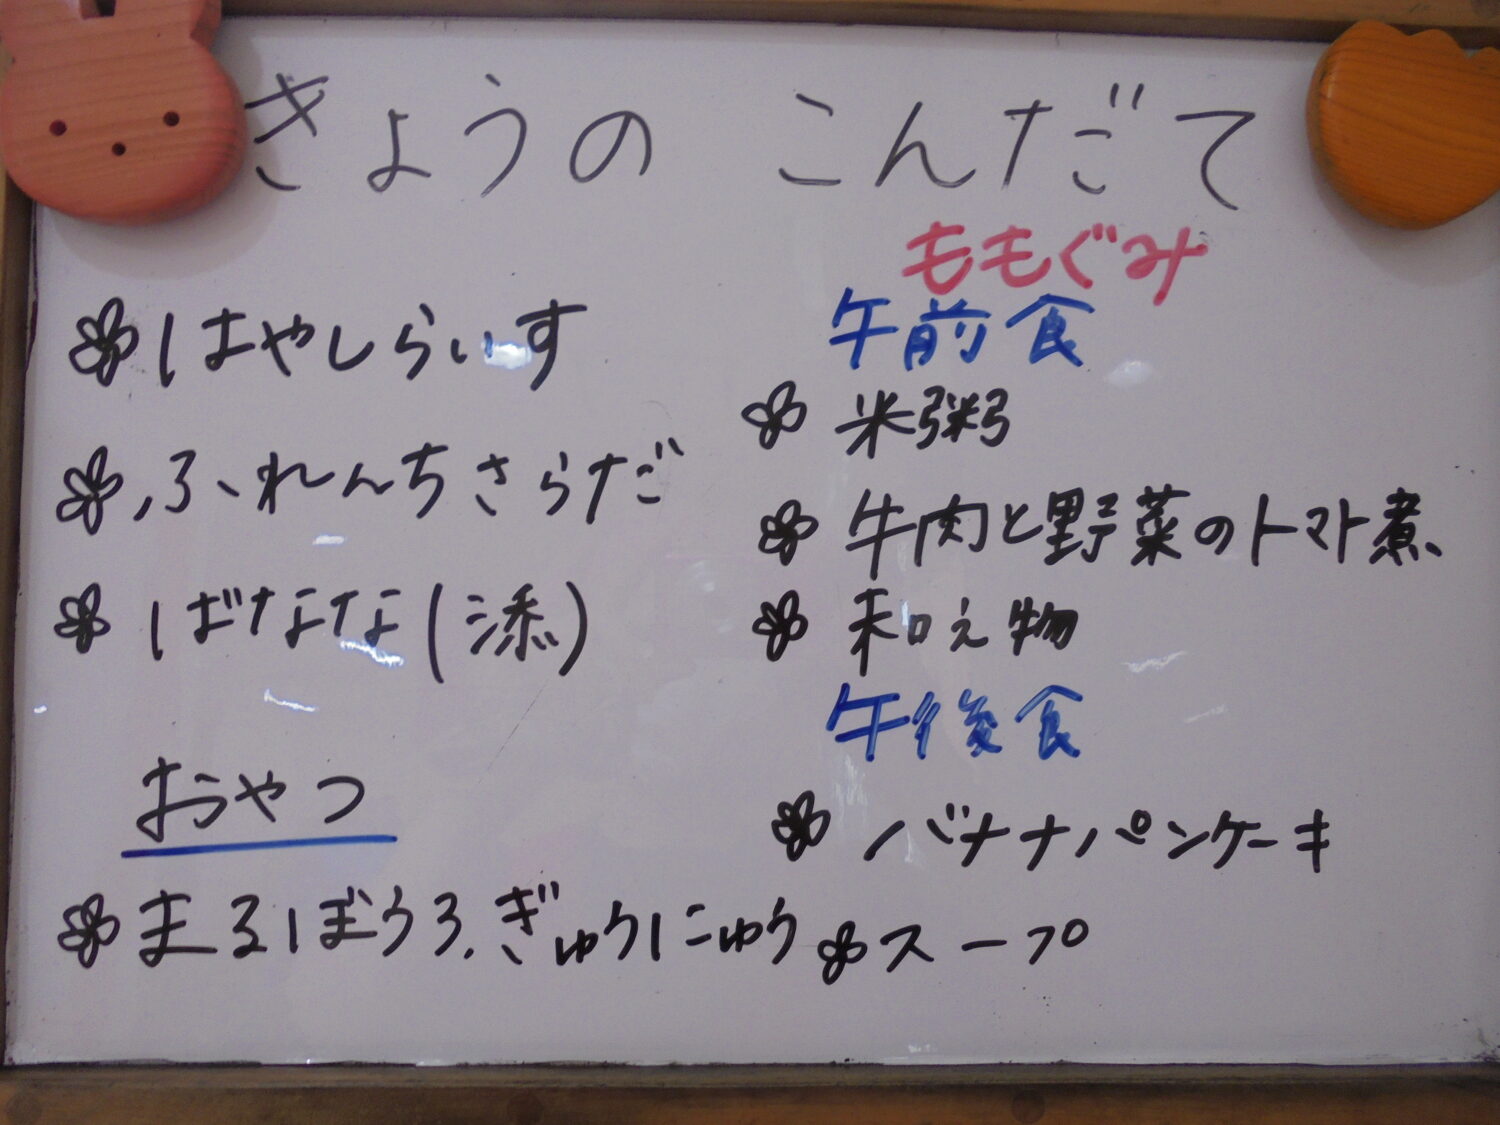 きょうの こんだて
はやしらいす
ふれんちさらだ
ばなな(添)
おやつ
まるぼうろ.ぎゅうにゅう
ももぐみ
午前食
米粥
牛肉と野菜のトマト煮
和え物
午後食
バナナパンケーキ
スープ